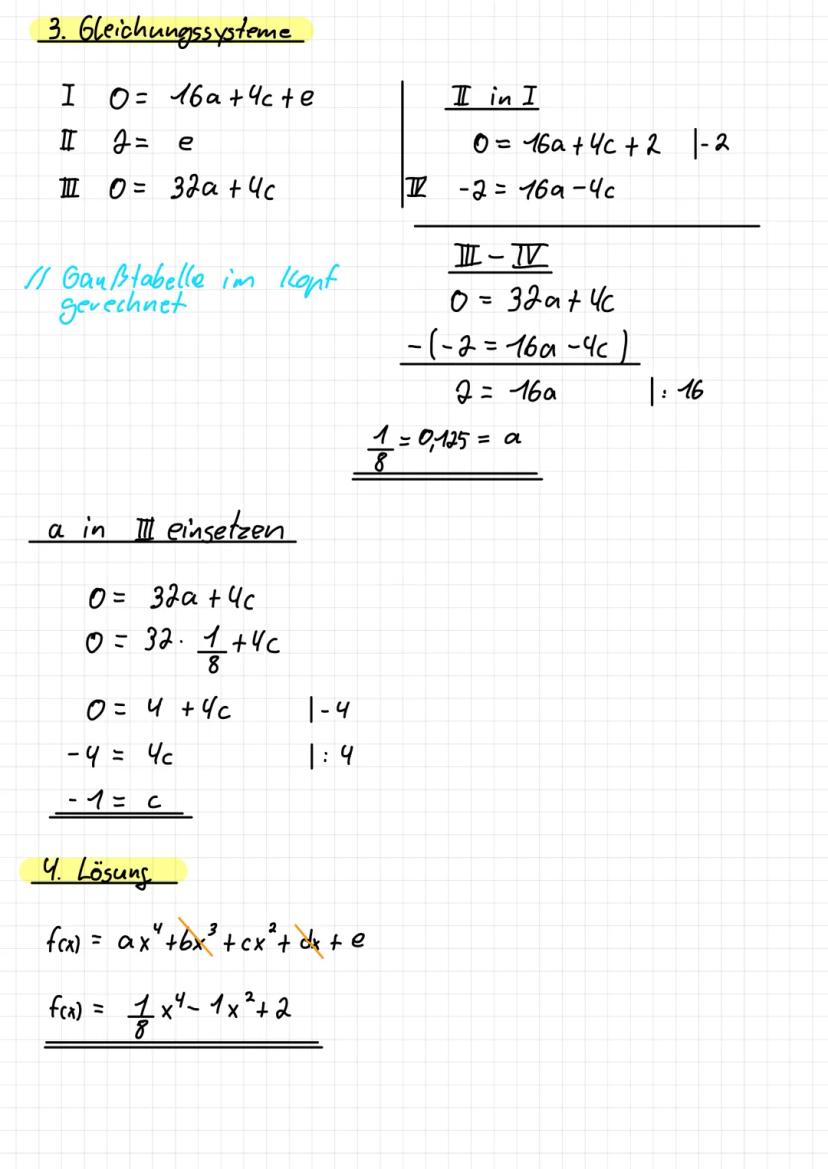 3. Gleichungssysteme
I 0 = 16a + 4c + e
II 2 = e
III 0 = 32a + 4c
// Gaußtabelle im Kopf
gerechnet
II in I
0 = 16a + 4c + 2 |-2
IV -2 = 16a - 4c
III - IV
0 = 32a + 4c
-(-2 = 16a - 4c)
2 = 16a |: 16
1/8 = 0,125 = a
a in III einsetzen
0 = 32a + 4c
0 = 32 · 1/8 + 4c
0 = 4 + 4c |-4
-4 = 4c |: 4
-1 = c
4. Lösung
f(x) = ax⁴ + bx³ + cx² + dx + e
f(x) = 1/8 x⁴ - 1x² + 2